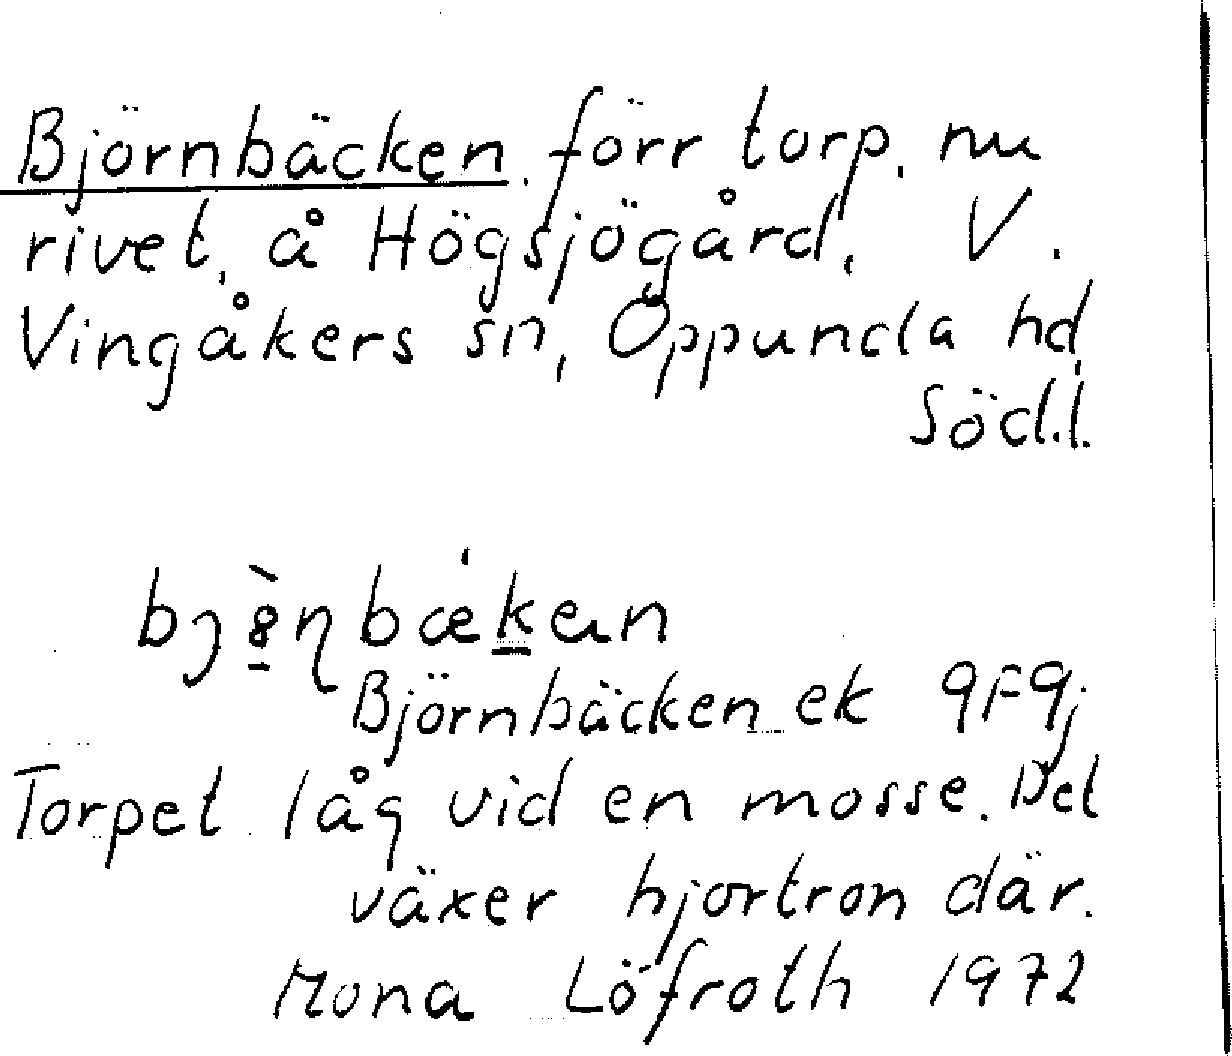 Björnbäcken, förr torp, nu
rivet, å Högsjögård, V.
Vingåkers sn, Oppunda hd,
Södl.
Björnbäcken ek 9F9j
Torpet låg vid en mosse. Det
växer hjortron där.
Mona Löfroth 1972